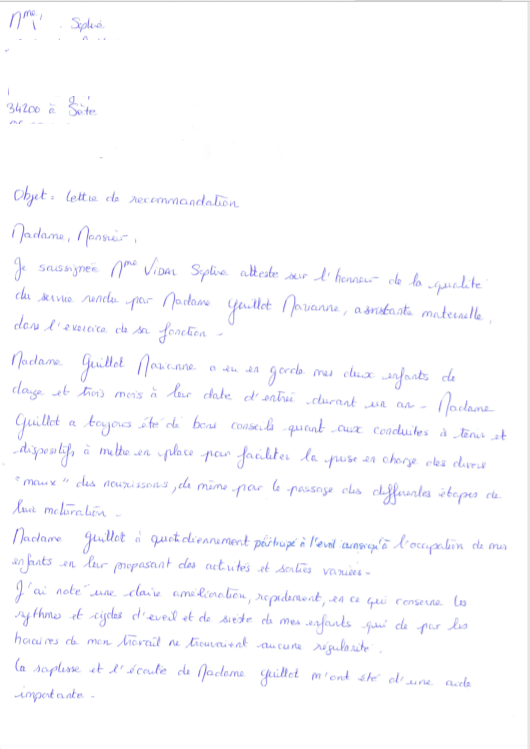 Mme Sophie
34200 à Sète
Objet : lettre de recommandation
Madame, Monsieur,
Je soussignée Mme VIDAL Sophie atteste sur l'honneur de la qualité
du service rendu par Madame Guillot Marianne, assistante maternelle,
dans l'exercice de sa fonction.
Madame Guillot Marianne a eu en garde mes deux enfants de
douze et trois mois à leur date d'entrée durant un an. Madame
Guillot a toujours été de bons conseils quant aux conduites à tenir et
dispositifs à mettre en place pour faciliter la prise en charge des divers
"maux" des nourrissons, de même pour le passage des différentes étapes de
leur maturation.
Madame Guillot à quotidiennement participé à l'éveil ainsi qu'à l'occupation de mes
enfants en leur proposant des activités et sorties variées.
J'ai noté une claire amélioration, rapidement, en ce qui concerne les
rythmes et cycles d'éveil et de sieste de mes enfants qui de par les
horaires de mon travail ne trouvaient aucune régularité.
La souplesse et l'écoute de Madame Guillot m'ont été d'une aide
importante.